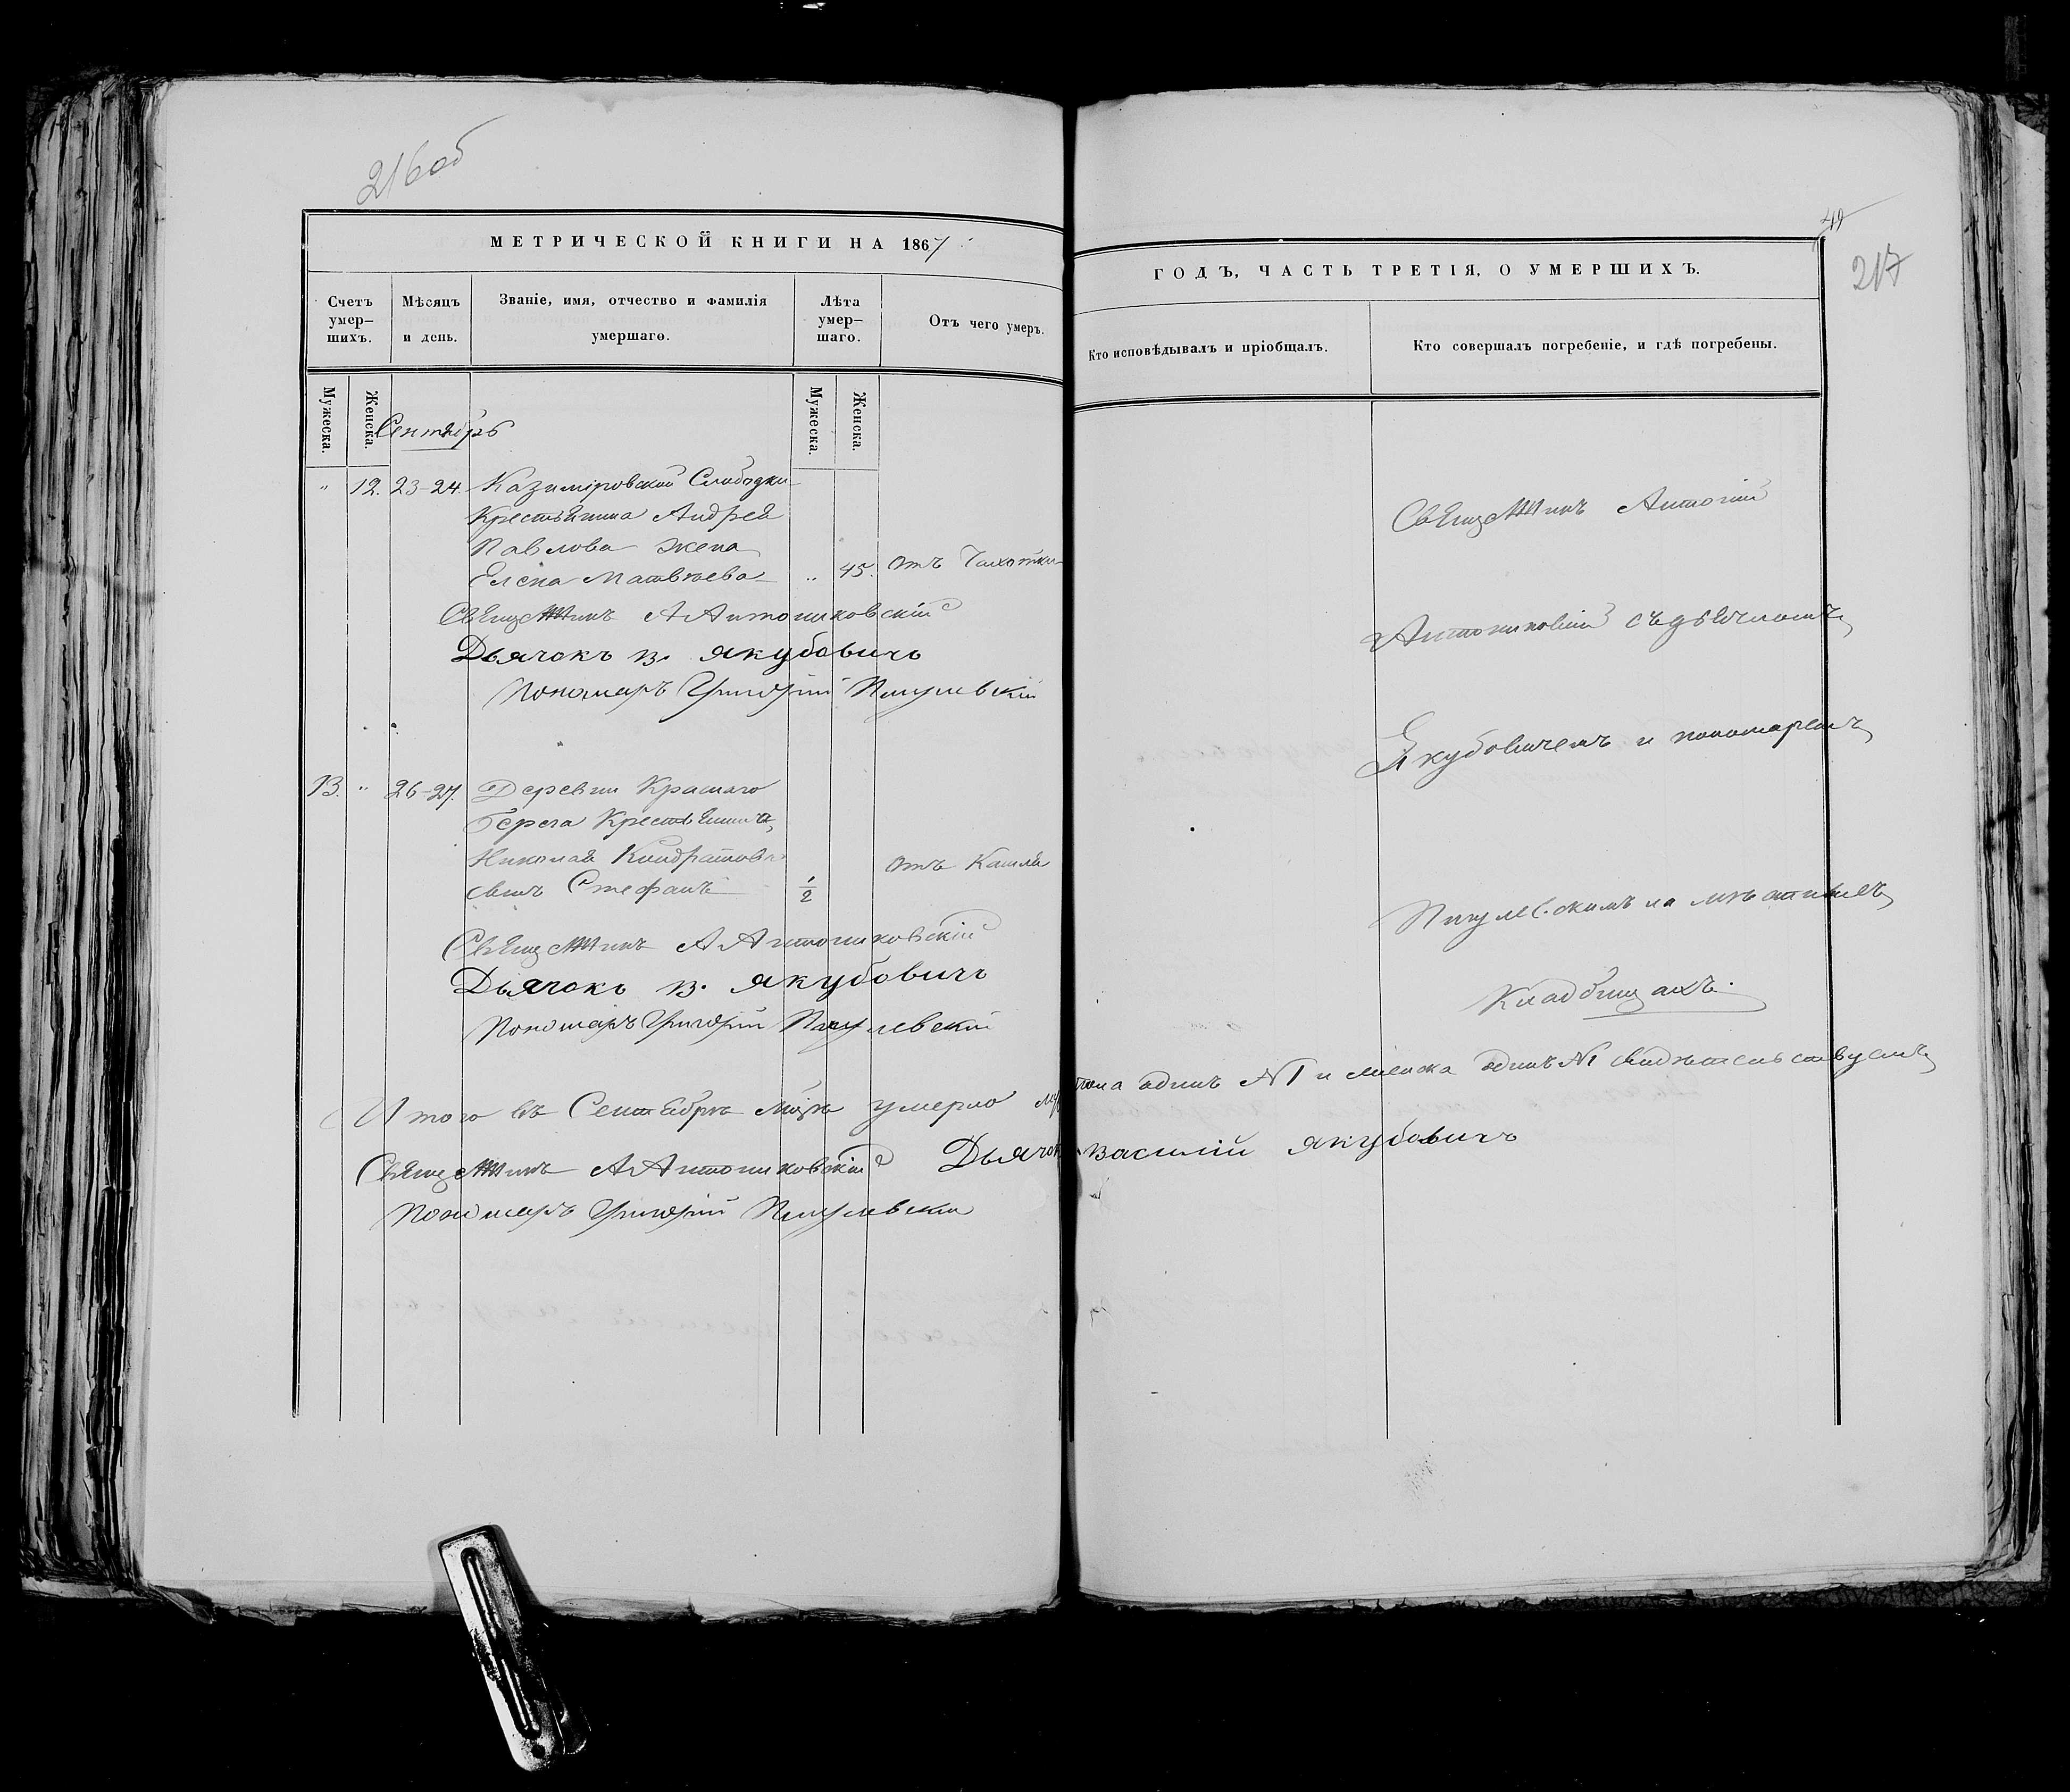 216об
МЕТРИЧЕСКОЙ КНИГИ НА 1867
Счетъ умер-шихъ.
Мѣсяцъ и день.
Званіе, имя, отчество и фамилія умершаго.
Лѣта умер-шаго.
Отъ чего умеръ.
Мужеска.
Женска.
Мужеска.
Женска.
Сентябрь
" 12. 23-24. Казиміровской Слободки
Крестьянина Андрея
Павлова жена
Елена Матвѣева " 45. отъ Чахотки
Священникъ А Антониковскій
Дьячокъ В. Якубовичъ
Пономарь Григорій Пигулевскій
13. " 26-27. Деревни Краснаго
Берега Крестьянина
Николая Кондратова
сынъ Стефанъ 1/2 отъ Кашля
Священникъ А Антониковскій
Дьячокъ В. Якубовичъ
Пономарь Григорій Пигулевскій
Итого въ Сентябрѣ мцѣ умерло
Священникъ А Антониковскій Дьячокъ
Пономарь Григорій Пигулевскій
49
217
ГОДЪ, ЧАСТЬ ТРЕТІЯ, О УМЕРШИХЪ.
Кто исповѣдывалъ и пріобщалъ.
Кто совершалъ погребеніе, и гдѣ погребены.
Священникъ Антоній
Антониковскій съ дьячкомъ
Якубовичемъ и пономаремъ
Пигулевскимъ на мѣстныхъ
Кладбищахъ.
одинъ №1 и женска одинъ №1 свидѣтельствуемъ
Василій Якубовичъ